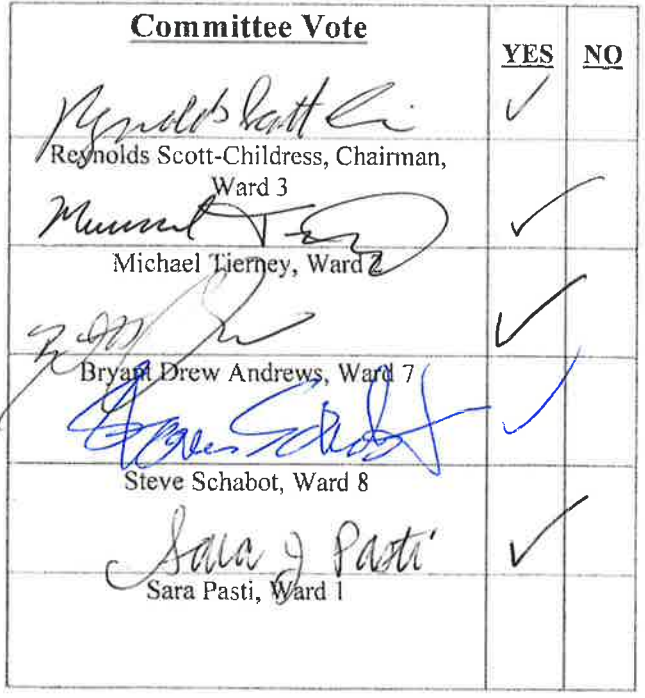 Committee Vote
YES NO
Reynolds Scott-Childress, Chairman,
Ward 3
Michael Tierney, Ward 2
Bryant Drew Andrews, Ward 7
Steve Schabot
Steve Schabot, Ward 8
Sara J Pasti
Sara Pasti, Ward 1